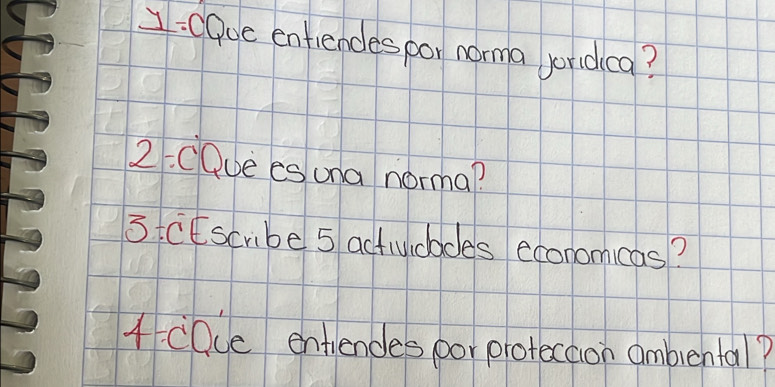 1-¿Que entiendes por norma juridica?
2-¿Què es una norma?
3-¿Escribe 5 actividades economicas?
4-¿Què entiendes por proteccion ambiental?